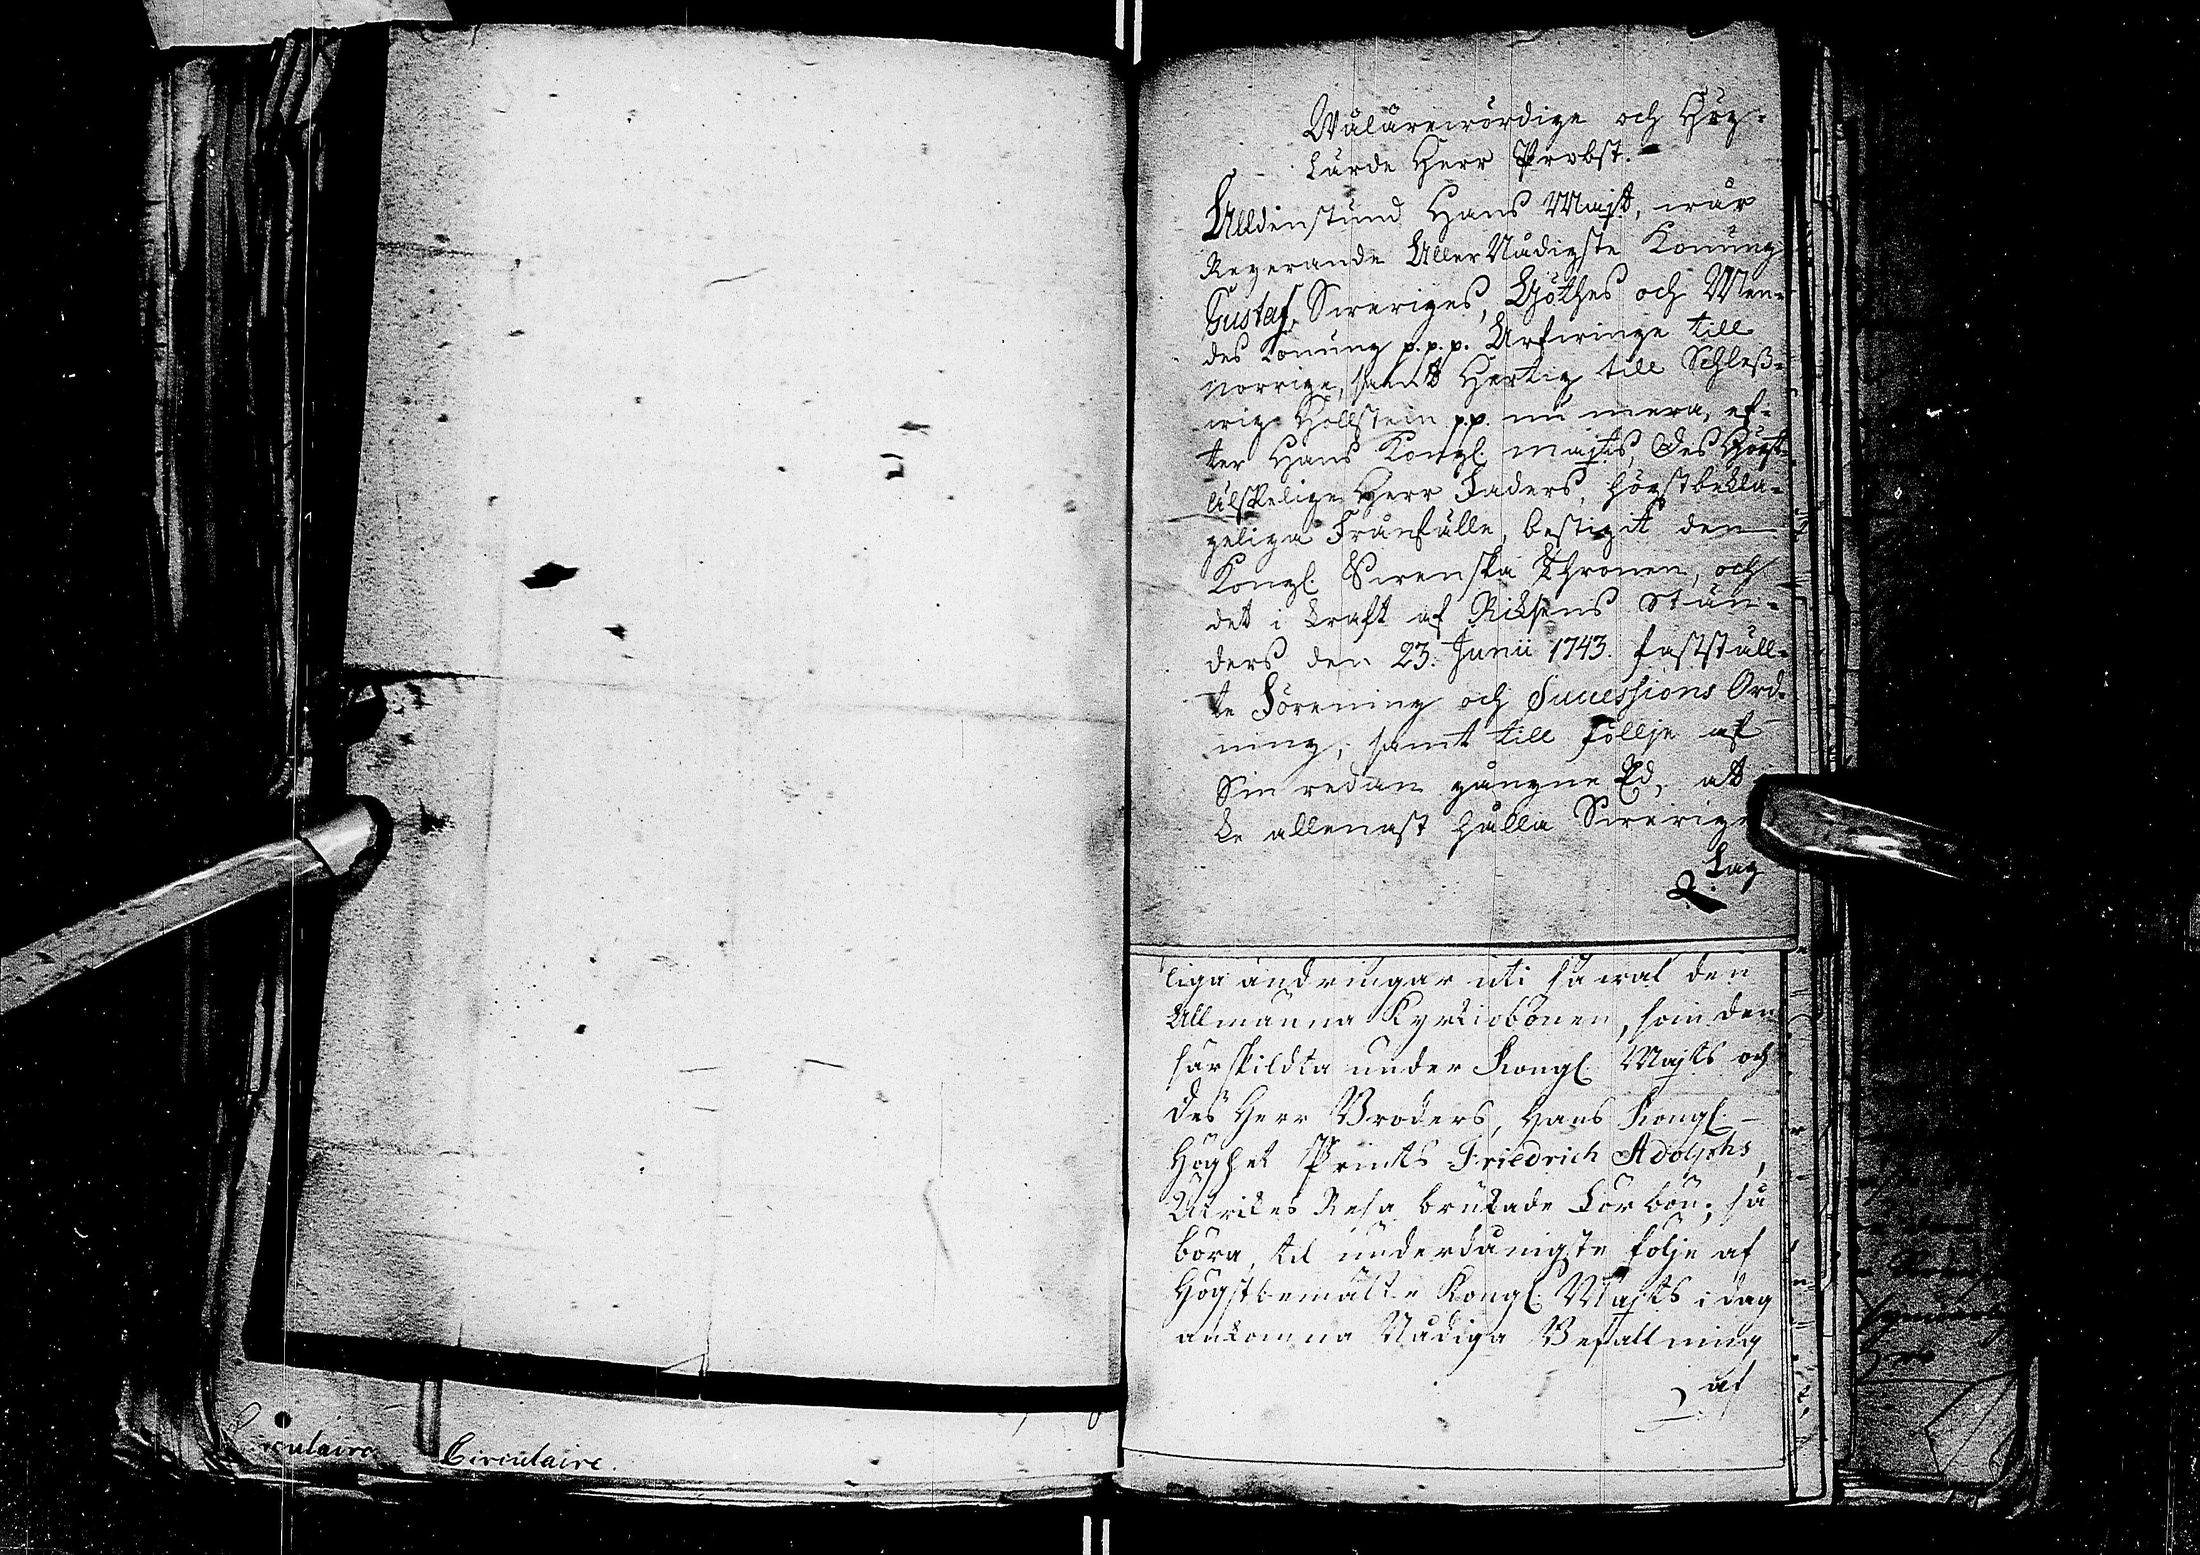 Wälärewördige och Hög-
Lärde Herr Probst.
Alldenstund Hans Majt, wår
Regerande AllerNådigste Konung
Gustaf, Sweriges, Göthes och Wen-
des Konung p.p.p. Arfwinge till
Norrige, samt Hertig till Schleß-
wig Hollstein p.p. nu mera, ef-
ter Hans Kongl. Majts, Des Högt-
älskelige Herr Faders, högstbekla-
geliga Frånfälle, bestigit den
Kongl. Swenska Thronen, och
det i kraft af Riksens Stän-
ders den 23. Junii 1743. fastställ-
te Förening och Successions Ord-
ning, samt till föllje af
Sin redan gångne Ed, att
ke allenast hålla Swerige
Lag
liga ändringar uti så wäl den
Allmänna Kyrkiobönen, som den
särskildta under Kongl. Majts och
Des Herr Broders, Hans Kongl.
Höghet Printz Friedrich Adolphs,
Utrikes Resa brukade Förbön; så
böra, til underdånigste följe af
Högstbemälte Kongl. Majts i dag
ankomna Nådiga Befallning
af
Circulaire
Circulaire.